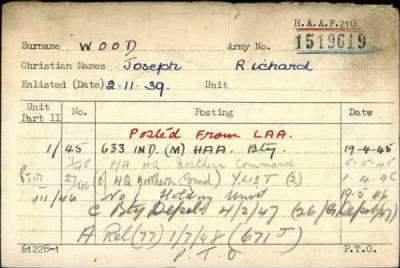 H.A.A.F.210
Surname WOOD Army No. 1519619
Christian Names Joseph Richard
Enlisted (Date) 2.11.39. Unit
Unit Part II No. Posting Date
Posted From LAA.
1/45 633 IND. (M) HAA. Bty. 19-4-45
1/45 P/A HQ Northern Command 5-5-45
Pt III 27/46 HQ Northern Comd) Y LIST (2) 1-4-46
III/46 No 1 Holding Unit 19.5.46
C Bty Depot 4/2/47 (26/ Depot/47)
A Rel (77) 1/7/48 (671 J)
61228-1 P.T.O. P.T.O.